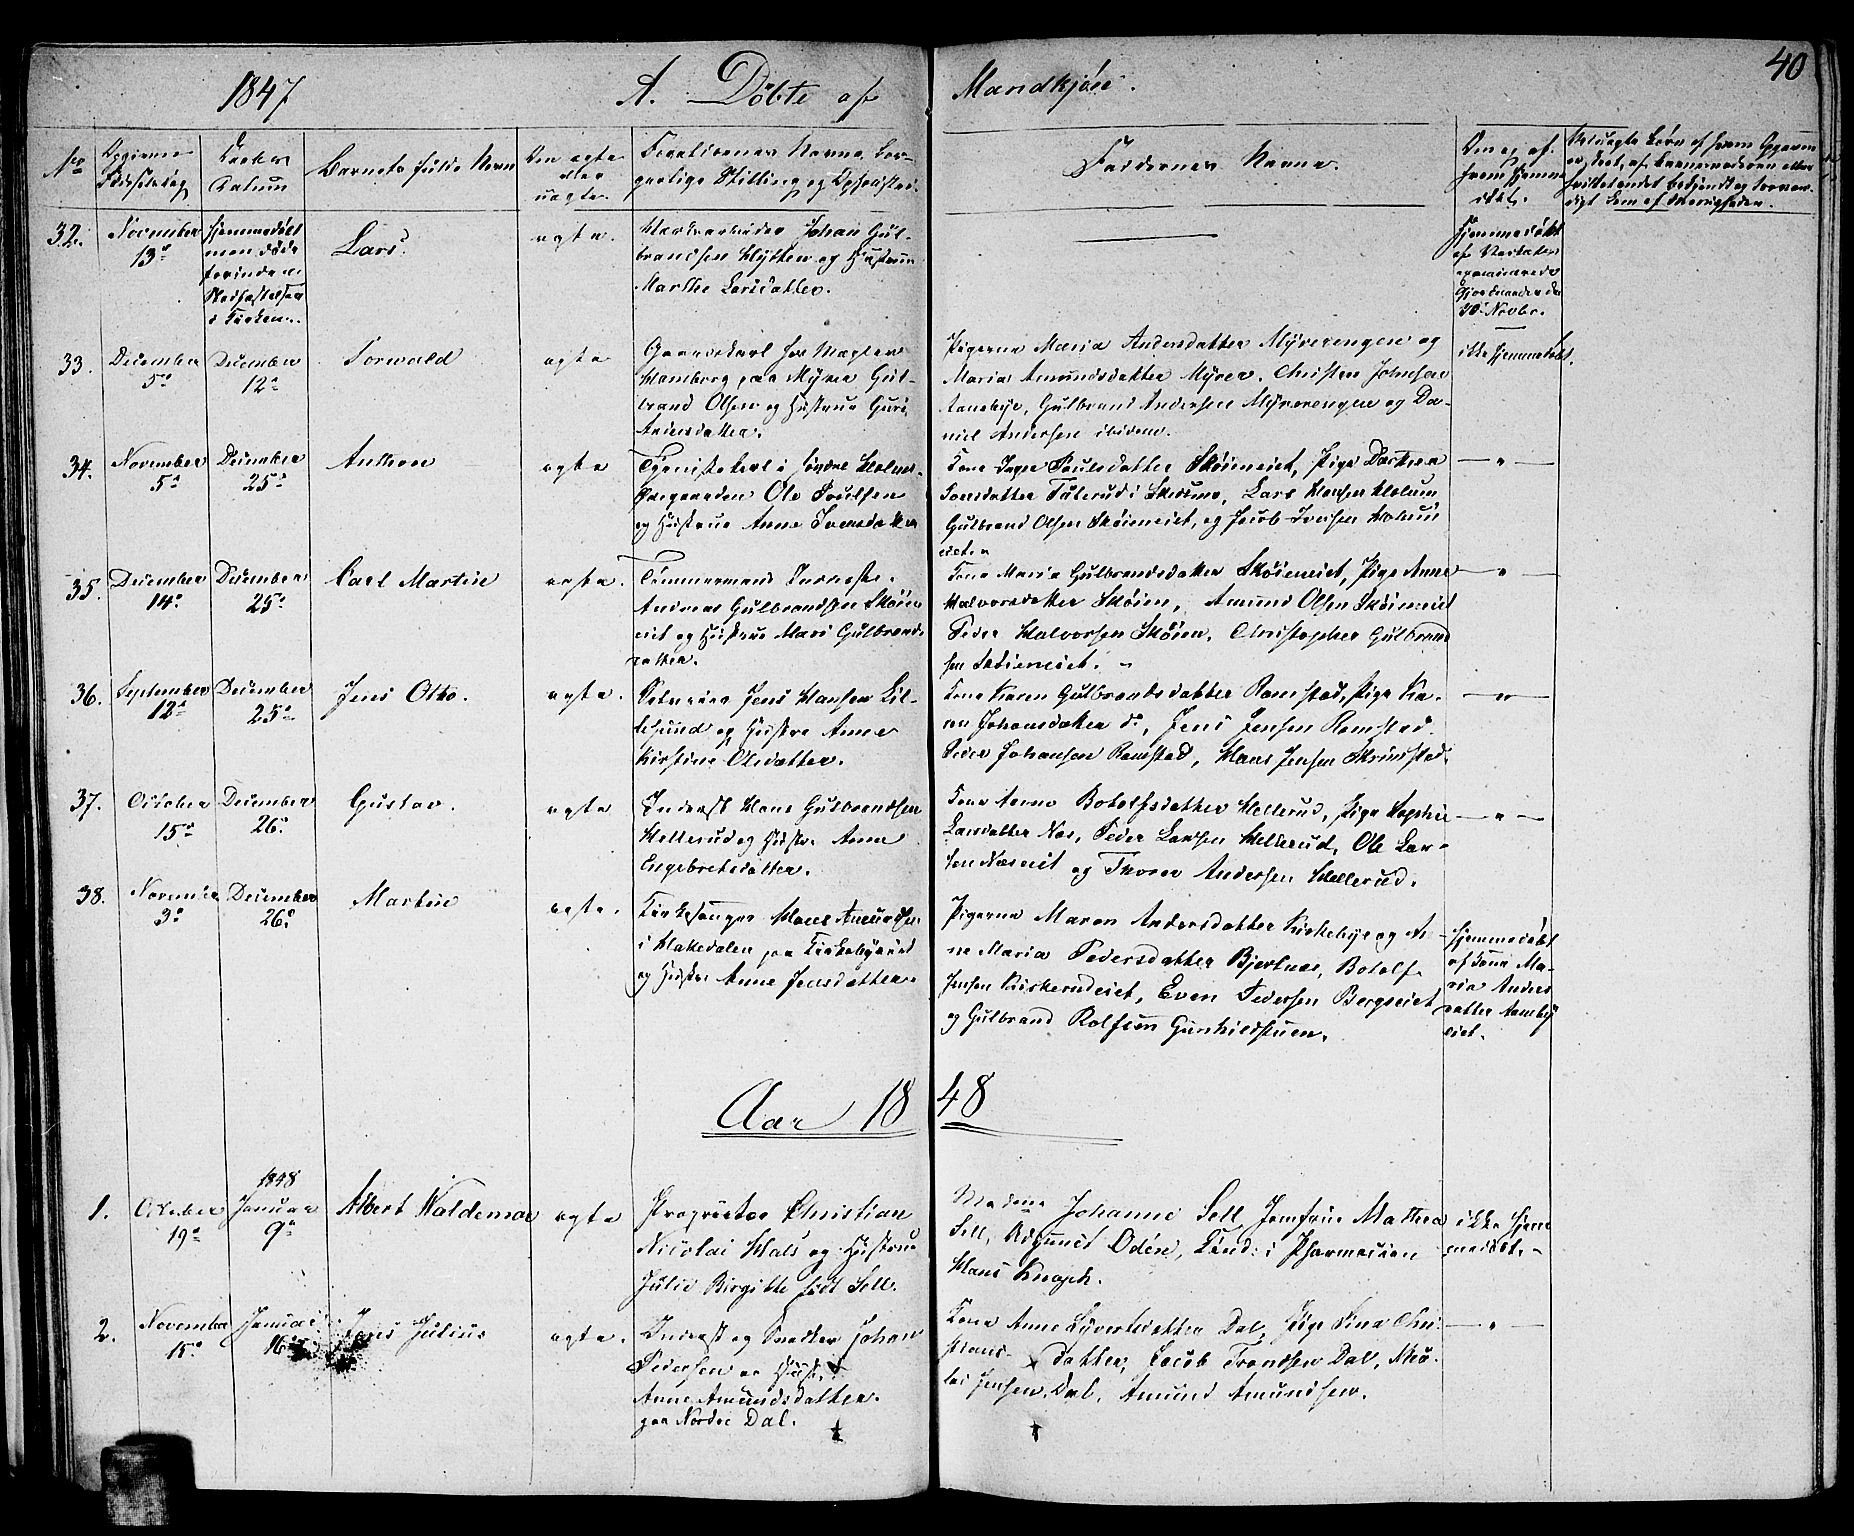 40
1847 A. Döbte af Mandkjön.
No
Opgivne Födselsdag
Daabens Datum
Barnets fulde Navn
Om ægte eller uægte
Forældrenes Navne, Borgerlige Stilling og Opholdssted.
Faddernes Navne.
Om og af hvem hjemmedöbt.
32. November 13de
hjemmedöbt men döde forinden Stadfæstelsen i Kirken.
Lars.
ægte.
Johan Gulbrandsen Hytten og Hustrue Marthe Larsdatter.
Hjemmedöbt af
30 Novbr.
33. December 5te
December 12te
Torwald
ægte
Gaardskarl hos
Homborg paa Myrer Gulbrand Olsen og Hustrue Guri Andersdatter.
Pigerne Maria Andersdatter Myrerengen og
Maria Amundsdatter Myrer, Christen Johnsen
Tanebye, Gulbrand Andersen Myrerengen og Daniel Andersen ibidem.
ikke hjemmedöbt.
34. November 5te
December 25de
Anthon
ægte
Tjenestekarl i
Ole Poulsen
og Hustrue Anne Iversdatter
Kone Inger Poulsdatter Sköieneiet, Pige Dorthea
Skedsmo, Lars Hansen Holum
Gulbrand Olsen Sköieneiet, og Jacob Iversen Holumeiet.
— " —
35. December 14de
December 25de
Carl Martin
ægte.
Tömmermand
Andreas Gulbrandsen Sköieneiet og Hustrue Mari Gulbrandsdatter.
Kone Maria Gulbrandsdatter Sköieneiet, Pige Anne
Halvorsdatter Sköien, Amund Olsen Sköieneiet
Peder Halvorsen Sköien, Christopher Gulbrandsen Sköieneiet.
— " —
36. September 12te
December 25de
Jens Otto.
ægte.
Jens Hansen Lillesund og Hustru Anne
Kirstine Olsdatter.
Kone Karen Gulbrandsdatter Ramstad, Pige Karen Johansdatter do, Jens Jensen Ramstad.
Peder Johansen Ramstad, Hans Jensen Skrimstad.
— " —
37. October 15de
December 26de
Gustav.
ægte
Inderst Hans Gulbrandsen
Hellerud og Hustru Anne
Engebretsdatter.
Kone Anne Botolfsdatter Hellerud, Pige Sophie
Larsdatter Næs, Peder Larsen Hellerud, Ole Larsen Næseiet og Thorer Andersen Hellerud.
— " —
38. November 3de
December 26de
Martin
ægte.
Kirkesanger Hans Amundsen
i Hakedalen paa Kirkebyeeiet
og Hustru Anne Jensdatter.
Pigerne Maren Andersdatter Kirkebye og Anne Maria Pedersdatter Bjertnæs, Botolf
Jensen Kirkerudeiet, Even Pedersen Bergseiet
og Gulbrand Rolfsen Gunhildstuen.
hjemmedöbt
af Kone Maria Andersdatter Aambyeiet.
Aar 1848
1. October 19de
1848
Januar 9de
Albert Waldemar
ægte
Proprietær Christian
Nicolai Hals og Hustrue
Julie Birgitte födt Sell.
Madame Johanne Sell, Jomfrue Mathea
Sell, Adjunct Odén, Kand: i Pharmacien
Hans Knoph.
ikke hjemmedöbt.
2. November 15de
Januar 16de
Jens Julius
ægte.
Inderst og Snedker Johan
Pedersen og Hustr.
Anne Amundsdatter.
paa Nordre Dal.
Kone Anne Syvertsdatter Dal, Pige Lina Christiansdatter, Jacob Trondsen Dal, Nicolai Jensen Dal, Amund Amundsen.
— " —